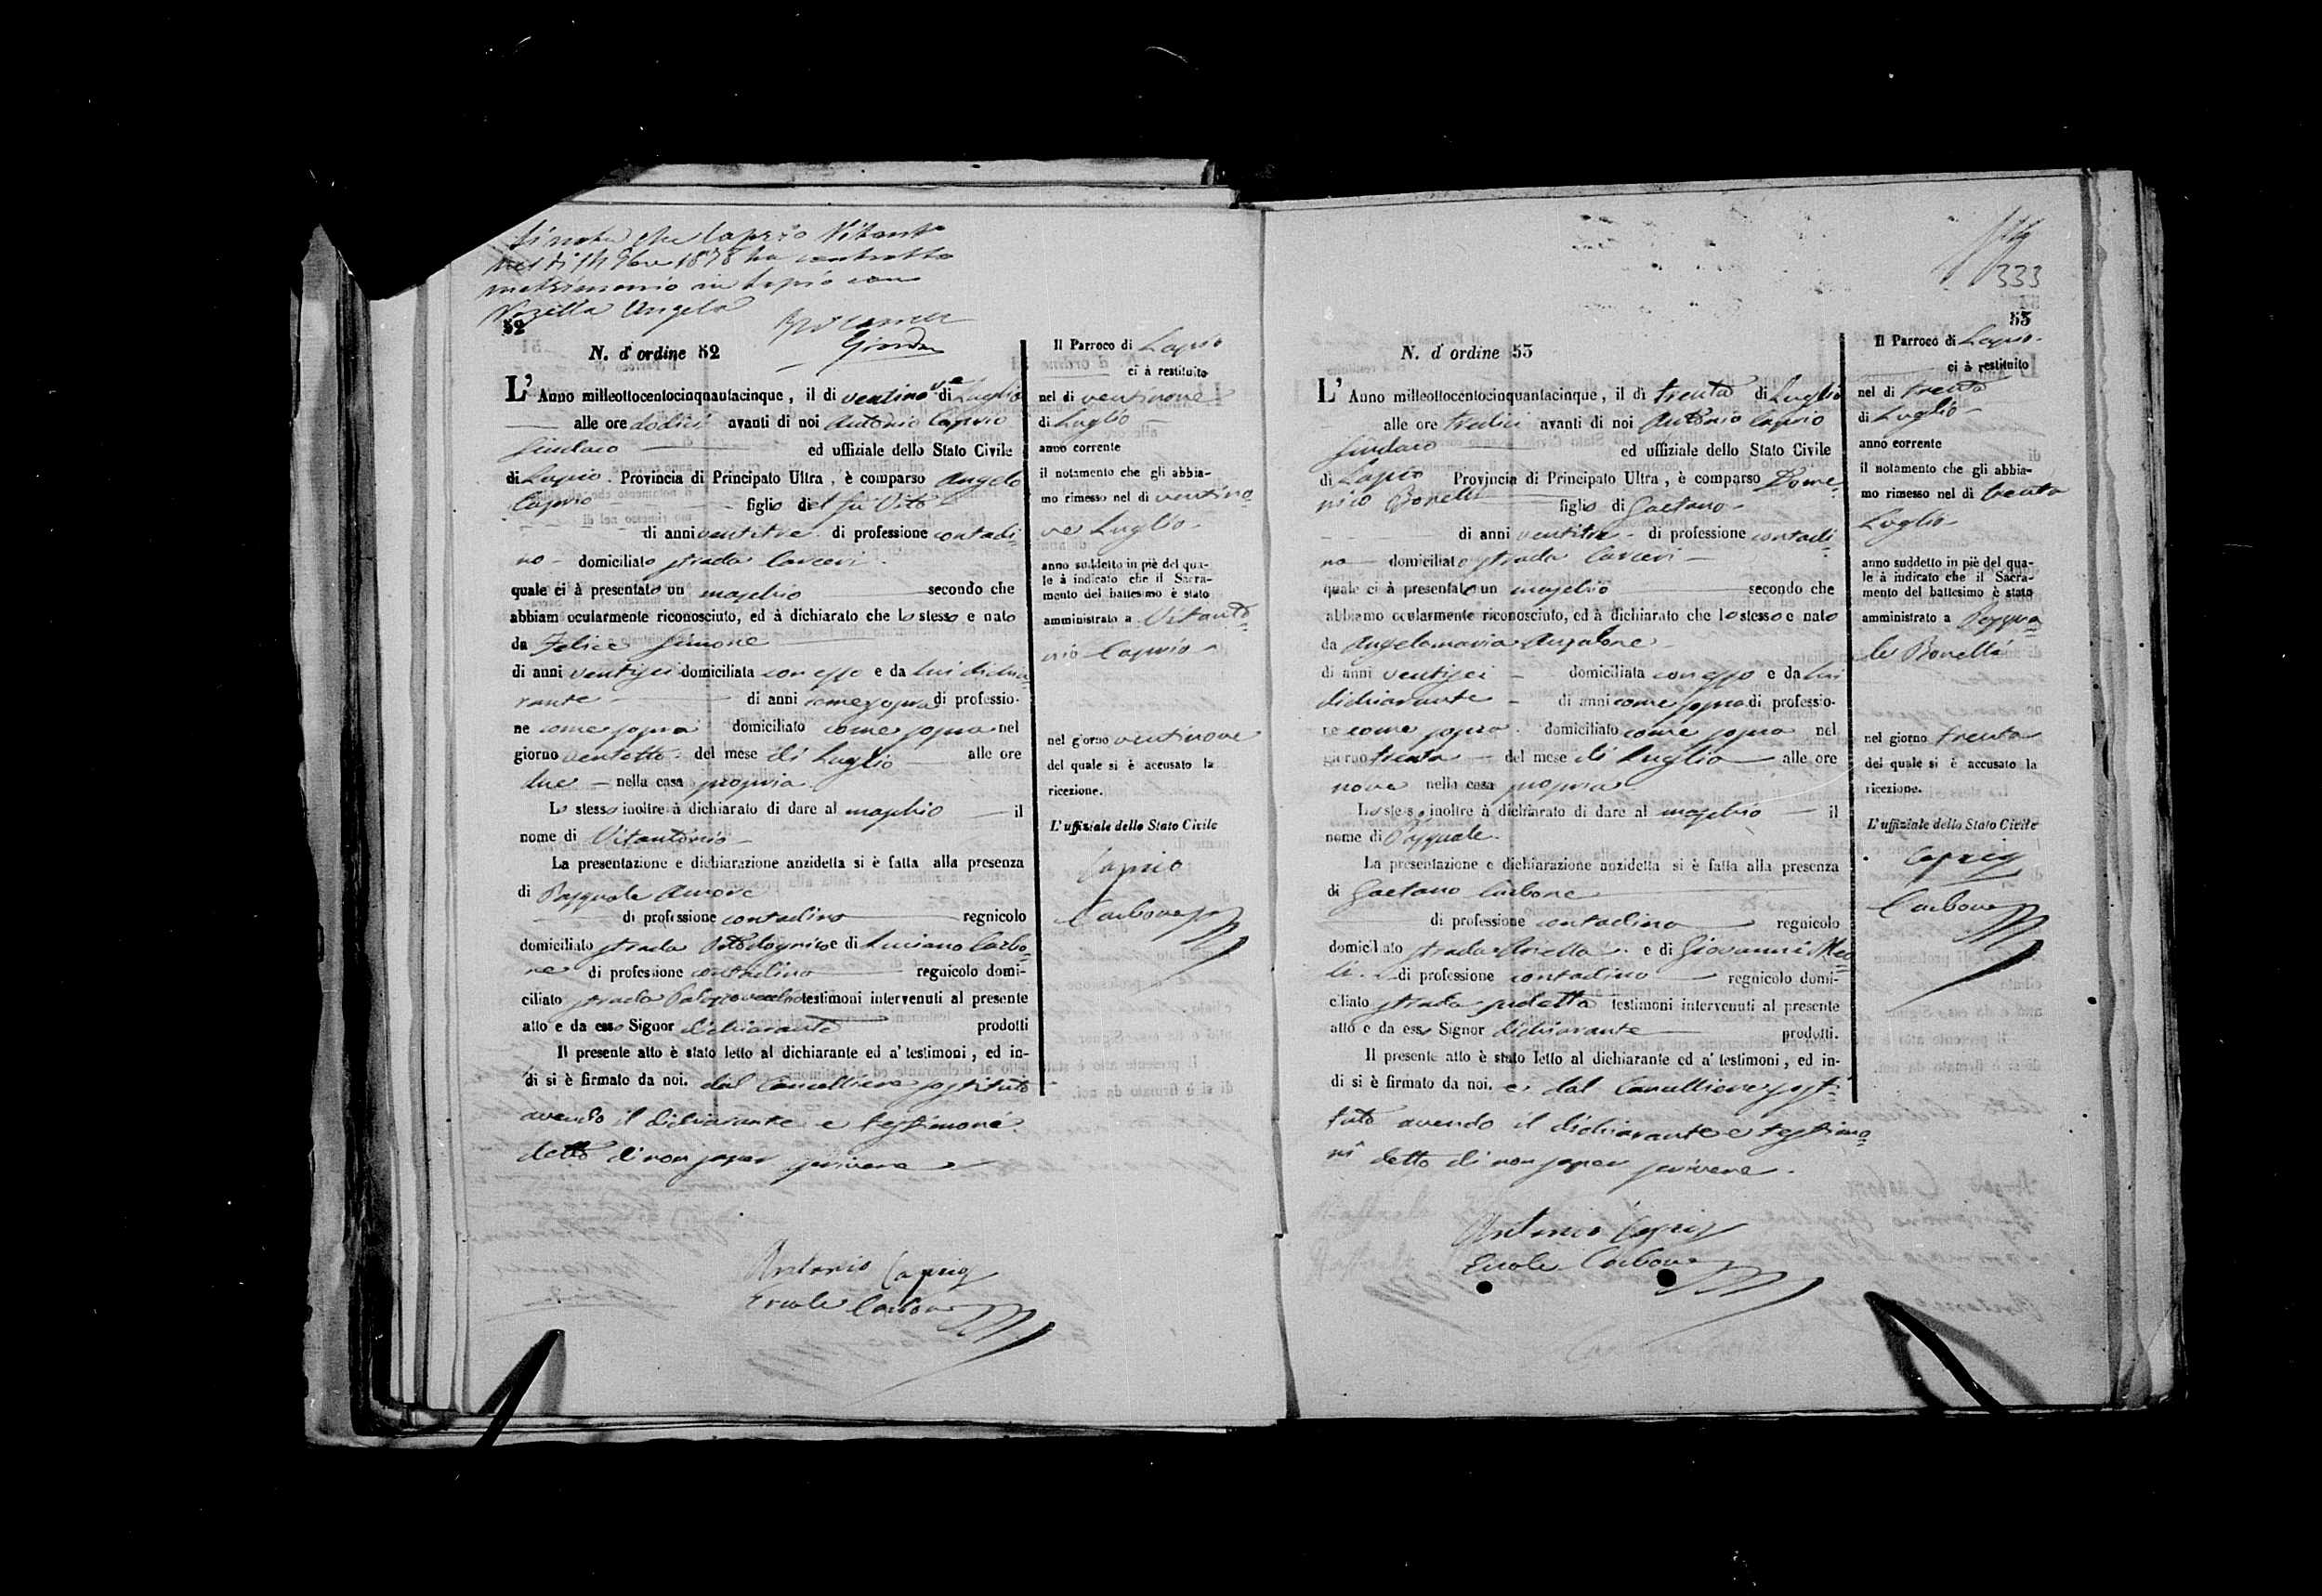 Si nota che Caprio Vitanto
nel dì 14 9bre 1878 ha contratto
matrimonio in Lapio con
Angela
52
N. d'ordine 52
L'Anno milleottocentocinquantacinque, il di ventinove di Luglio
alle ore dodici avanti di noi Antonio Caprio
Sindaco ed uffiziale dello Stato Civile
di Lapio. Provincia di Principato Ultra, è comparso Angelo
Caprio figlio del fu Vito
di anni ventitre di professione contadi=
no domiciliato strada Carceri
quale ci à presentato un maschio secondo che
abbiam ocularmente riconosciuto, ed à dichiarato che lo stesso e nato
da Felice Simone
di anni ventisei domiciliata con esso e da lui dichia=
rante di anni come sopra di professio-
ne come sopra domiciliato come sopra nel
giorno ventotto del mese di Luglio alle ore
due nella casa propria
Lo stesso inoltre à dichiarato di dare al maschio il
nome di Vitantonio
La presentazione e dichiarazione anzidetta si è fatta alla presenza
di Pasquale
di professione contadino regnicolo
domiciliato strada e di Luciano Carbo=
ne di professione contadino regnicolo domi-
ciliato strada testimoni intervenuti al presente
atto e da esso Signor dichiarante prodotti
Il presente atto è stato letto al dichiarante ed a' testimoni, ed in-
di si è firmato da noi. dal Cancelliere sostituto
avendo il dichiarante e testimoni
detto di non saper scrivere
Antonio Caprio
Ercole Carbone
Il Parroco di Lapio
ci à restituito
nel di ventinove
di Luglio
anno corrente
il notamento che gli abbia-
mo rimesso nel di ventino=
ve Luglio
anno suddetto in piè del qua-
le à indicato che il Sacra-
mento del battesimo è stato
amministrato a Vitanto=
nio Caprio
nel giorno ventinove
del quale si è accusato la
ricezione.
L'uffiziale dello Stato Civile
Caprio
Carbone
333
53
N. d'ordine 53
L'Anno milleottocentocinquantacinque, il di trenta di Luglio
alle ore tredici avanti di noi Antonio Caprio
Sindaco ed uffiziale dello Stato Civile
di Lapio Provincia di Principato Ultra, è comparso Dome=
nico Bonelli figlio di Gaetano
di anni ventitre di professione contadi=
no domiciliato strada Carceri
quale ci à presentato un maschio secondo che
abbiamo ocularmente riconosciuto, ed à dichiarato che lo stesso e nato
da Angelamaria Anzalone
di anni ventisei domiciliata con esso e da lui
dichiarante di anni come sopra di professio-
ne come sopra domiciliato come sopra nel
giorno trenta del mese di Luglio alle ore
nove nella casa propria
Lo stesso inoltre à dichiarato di dare al maschio il
nome di Pasquale
La presentazione e dichiarazione anzidetta si è fatta alla presenza
di Gaetano Carbone
di professione contadino regnicolo
domiciliato strada e di Giovanni
di professione contadino regnicolo domi-
ciliato strada sudetta testimoni intervenuti al presente
atto e da esso Signor dichiarante prodotti.
Il presente atto è stato letto al dichiarante ed a' testimoni, ed in-
di si è firmato da noi. e dal Cancelliere sosti=
tuto avendo il dichiarante e testimo=
ni detto di non saper scrivere.
Antonio Caprio
Ercole Carbone
Il Parroco di Lapio
ci à restituito
nel di trenta
di Luglio
anno corrente
il notamento che gli abbia-
mo rimesso nel di trenta
Luglio
anno suddetto in piè del qua-
le à indicato che il Sacra-
mento del battesimo è stato
amministrato a Pasqua=
le Bonelli
nel giorno trenta
del quale si è accusato la
ricezione.
L'uffiziale dello Stato Civile
Caprio
Carbone